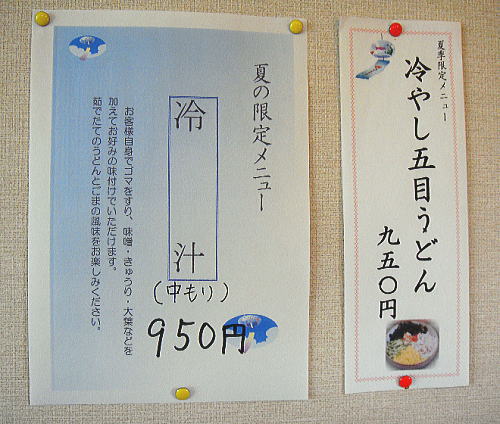 夏季限定メニュー
冷やし五目うどん
九五〇円
夏の限定メニュー
冷汁
(中もり)
950円
お客様自身でゴマをすり、味噌・きゅうり・大葉などを
加えてお好みの味付けでいただけます。
茹でたてのうどんとごまの風味をお楽しみください。